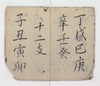 丁戊己庚
辛壬癸
十二支
子丑寅卯